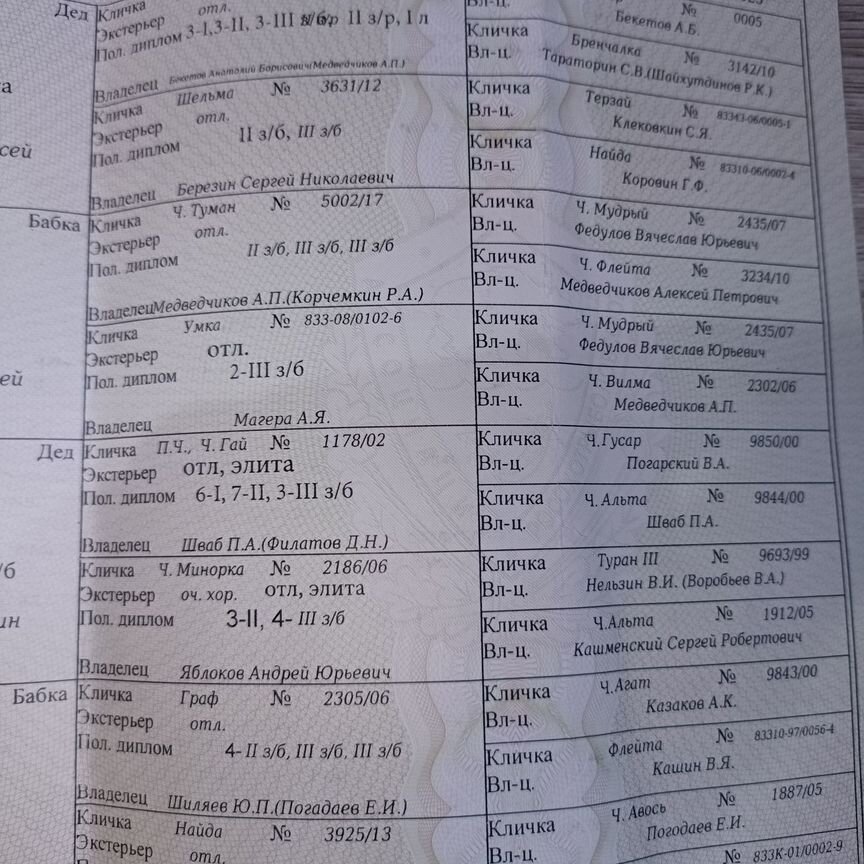 Дед
Кличка
Экстерьер отл.
Пол. диплом 3-I,3-II, 3-III з/б, II з/р, I л
Владелец Бекетов Анатолий Борисович(Медведчиков А.П.)
Кличка Шельма № 3631/12
Экстерьер отл.
Пол. диплом II з/б, III з/б
Владелец Березин Сергей Николаевич
Бабка
Кличка Ч. Туман № 5002/17
Экстерьер отл.
Пол. диплом II з/б, III з/б, III з/б
ВладелецМедведчиков А.П.(Корчемкин Р.А.)
Кличка Умка № 833-08/0102-6
Экстерьер отл.
Пол. диплом 2-III з/б
Владелец Магера А.Я.
Дед
Кличка П.Ч., Ч. Гай № 1178/02
Экстерьер отл, элита
Пол. диплом 6-I, 7-II, 3-III з/б
Владелец Шваб П.А.(Филатов Д.Н.)
Кличка Ч. Минорка № 2186/06
Экстерьер оч. хор. отл, элита
Пол. диплом 3-II, 4- III з/б
Владелец Яблоков Андрей Юрьевич
Бабка
Кличка Граф № 2305/06
Экстерьер отл.
Пол. диплом 4- II з/б, III з/б, III з/б
Владелец Шиляев Ю.П.(Погадаев Е.И.)
Кличка Найда № 3925/13
Экстерьер отл.
Вл-ц. № 0005
Бекетов А.Б.
Кличка Бренчалка № 3142/10
Вл-ц. Тараторин С.В.(Шайхутдинов Р.К.)
Кличка Терзай № 83343-06/0005-1
Вл-ц. Клековкин С.Я.
Кличка Найда № 83310-06/0002-4
Вл-ц. Коровин Г.Ф.
Кличка Ч. Мудрый № 2435/07
Вл-ц. Федулов Вячеслав Юрьевич
Кличка Ч. Флейта № 3234/10
Вл-ц. Медведчиков Алексей Петрович
Кличка Ч. Мудрый № 2435/07
Вл-ц. Федулов Вячеслав Юрьевич
Кличка Ч. Вилма № 2302/06
Вл-ц. Медведчиков А.П.
Кличка Ч.Гусар № 9850/00
Вл-ц. Погарский В.А.
Кличка Ч. Альта № 9844/00
Вл-ц. Шваб П.А.
Кличка Туран III № 9693/99
Вл-ц. Нельзин В.И. (Воробьев В.А.)
Кличка Ч.Альта № 1912/05
Вл-ц. Кашменский Сергей Робертович
Кличка Ч.Агат № 9843/00
Вл-ц. Казаков А.К.
Кличка Флейта № 83310-97/0056-4
Вл-ц. Кашин В.Я.
Кличка Ч. Авось № 1887/05
Вл-ц. Погодаев Е.И.
№ 833К-01/0002-9